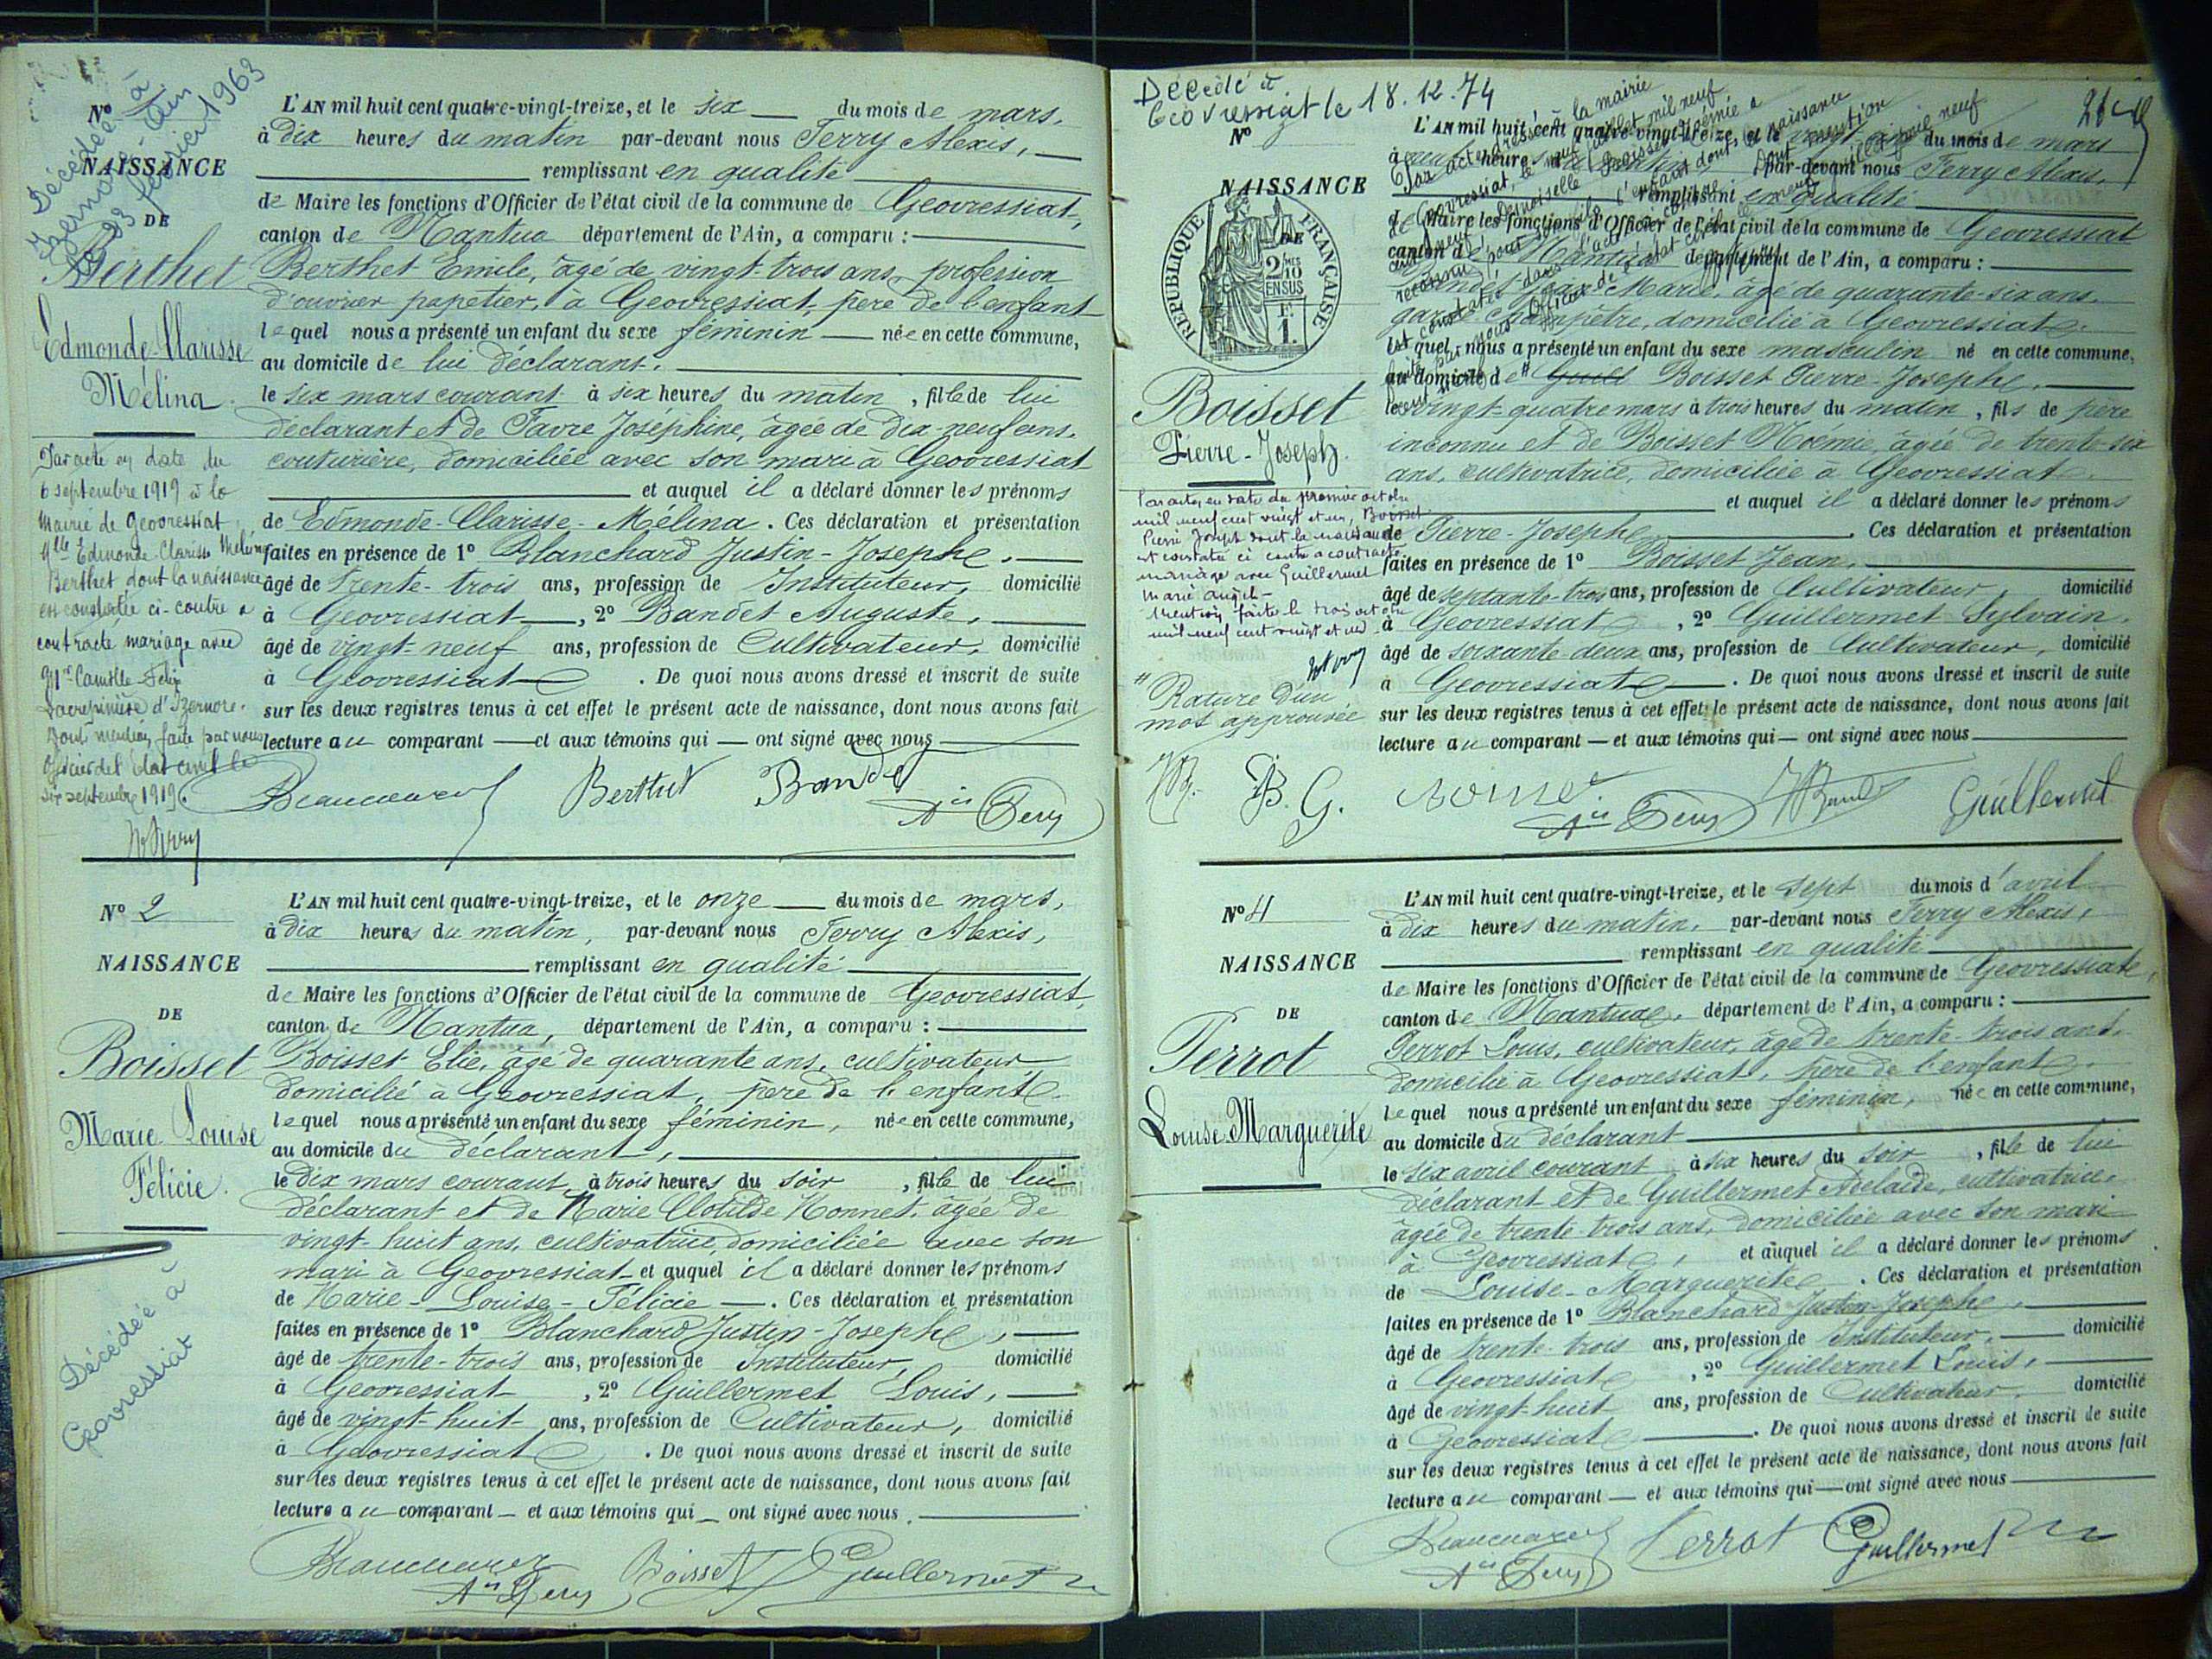 Décédée à
Izernore - Ain
23 février 1963
Nº
NAISSANCE
DE
Berthet
Edmonde-Clarisse
Mélina.
Par acte en date du
6 septembre 1919 à la
Mairie de Geovressiat
Mlle Edmonde-Clarisse Mélina
Berthet dont la naissance
est constatée ci-contre a
contracté mariage avec
Mr Camille Félix
d'Izernore.
Dont mention faite par nous
Officier de l'état civil le
six septembre 1919.
L'AN mil huit cent quatre-vingt-treize, et le six du mois de mars,
à dix heures du matin par-devant nous Ferry Alexis,
remplissant en qualité
de Maire les fonctions d'Officier de l'état civil de la commune de Geovressiat,
canton de Nantua département de l'Ain, a comparu :
Berthet Emile, âgé de vingt-trois ans, profession
d'ouvrier papetier, à Geovressiat, père de l'enfant
lequel nous a présenté un enfant du sexe féminin née en cette commune,
au domicile de lui déclarant.
le six mars courant à six heures du matin, fille de lui
déclarant et de Favre Joséphine, âgée de dix-neuf ans,
couturière, domiciliée avec son mari à Geovressiat
et auquel il a déclaré donner les prénoms
de Edmonde-Clarisse-Mélina. Ces déclaration et présentation
faites en présence de 1º Blanchard Justin-Josephe,
âgé de trente-trois ans, profession de Instituteur, domicilié
à Geovressiat, 2º Bandet Auguste,
âgé de vingt-neuf ans, profession de Cultivateur, domicilié
à Geovressiat. De quoi nous avons dressé et inscrit de suite
sur les deux registres tenus à cet effet le présent acte de naissance, dont nous avons fait
lecture au comparant et aux témoins qui ont signé avec nous
Berthet Bandet
Nº 2
NAISSANCE
DE
Boisset
Marie-Louise
Félicie.
Décédée à
Geovressiat
L'AN mil huit cent quatre-vingt-treize, et le onze du mois de mars,
à dix heures du matin, par-devant nous Ferry Alexis,
remplissant en qualité
de Maire les fonctions d'Officier de l'état civil de la commune de Geovressiat,
canton de Nantua, département de l'Ain, a comparu :
Boisset Elie, âgé de quarante ans, cultivateur
domicilié à Geovressiat, père de l'enfant
lequel nous a présenté un enfant du sexe féminin, née en cette commune,
au domicile du déclarant,
le dix mars courant à trois heures du soir, fille de lui
déclarant et de Marie Clotilde Monnet, âgée de
vingt-huit ans, cultivatrice, domiciliée avec son
mari à Geovressiat et auquel il a déclaré donner les prénoms
de Marie-Louise-Félicie. Ces déclaration et présentation
faites en présence de 1º Blanchard Justin-Josephe,
âgé de trente-trois ans, profession de Instituteur, domicilié
à Geovressiat, 2º Guillermet Louis,
âgé de vingt-huit ans, profession de Cultivateur, domicilié
à Geovressiat. De quoi nous avons dressé et inscrit de suite
sur les deux registres tenus à cet effet le présent acte de naissance, dont nous avons fait
lecture au comparant et aux témoins qui ont signé avec nous.
Boisset Guillermet
Décédé à
Geovressiat le 18.12.74
Nº
NAISSANCE
DE
RÉPUBLIQUE FRANÇAISE
2/10
EN SUS
F.
1.
Boisset
Pierre-Joseph.
Par acte, en date du premier octobre
mil neuf cent vingt et un, Boisset
Pierre Joseph dont la naissance
est constatée ci contre a contracté
mariage avec Guillermet
Marie
Mention faite le trois octobre
mil neuf cent vingt et un.
" Rature d'un
mot approuvée
L'AN mil huit cent quatre-vingt-treize, et le vingt-cinq du mois de mars
à heures du matin, par-devant nous Ferry Alexis,
remplissant en qualité
de Maire les fonctions d'Officier de l'état civil de la commune de Geovressiat
canton de Nantua département de l'Ain, a comparu :
Jean-Marie, âgé de quarante-six ans,
garde champêtre, domicilié à Geovressiat.
lequel nous a présenté un enfant du sexe masculin né en cette commune,
au domicile de " Boisset Pierre-Josephe.
le vingt-quatre mars à trois heures du matin, fils de père
inconnu et de Boisset Noémie, âgée de trente-six
ans, cultivatrice, domiciliée à Geovressiat.
et auquel il a déclaré donner les prénoms
de Pierre-Josephe. Ces déclaration et présentation
faites en présence de 1º Boisset Jean,
âgé de septante-trois ans, profession de Cultivateur, domicilié
à Geovressiat, 2º Guillermet Sylvain,
âgé de soixante-deux ans, profession de Cultivateur, domicilié
à Geovressiat. De quoi nous avons dressé et inscrit de suite
sur les deux registres tenus à cet effet le présent acte de naissance, dont nous avons fait
lecture au comparant et aux témoins qui ont signé avec nous
B. G. Guillermet
Nº 4
NAISSANCE
DE
Perrot
Louise-Marguerite
L'AN mil huit cent quatre-vingt-treize, et le sept du mois d'avril
à dix heures du matin, par-devant nous Ferry Alexis,
remplissant en qualité
de Maire les fonctions d'Officier de l'état civil de la commune de Geovressiat,
canton de Nantua, département de l'Ain, a comparu :
Perrot Louis, cultivateur, âgé de trente-trois ans
domicilié à Geovressiat, père de l'enfant,
lequel nous a présenté un enfant du sexe féminin, née en cette commune,
au domicile du déclarant
le six avril courant à six heures du soir, fille de lui
déclarant et de Guillermet Adelaïde, cultivatrice,
âgée de trente-trois ans, domiciliée avec son mari
à Geovressiat, et auquel il a déclaré donner les prénoms
de Louise-Marguerite. Ces déclaration et présentation
faites en présence de 1º Blanchard Justin-Josephe,
âgé de trente-trois ans, profession de Instituteur, domicilié
à Geovressiat, 2º Guillermet Louis,
âgé de vingt-huit ans, profession de Cultivateur, domicilié
à Geovressiat. De quoi nous avons dressé et inscrit de suite
sur les deux registres tenus à cet effet le présent acte de naissance, dont nous avons fait
lecture au comparant et aux témoins qui ont signé avec nous
Perrot Guillermet